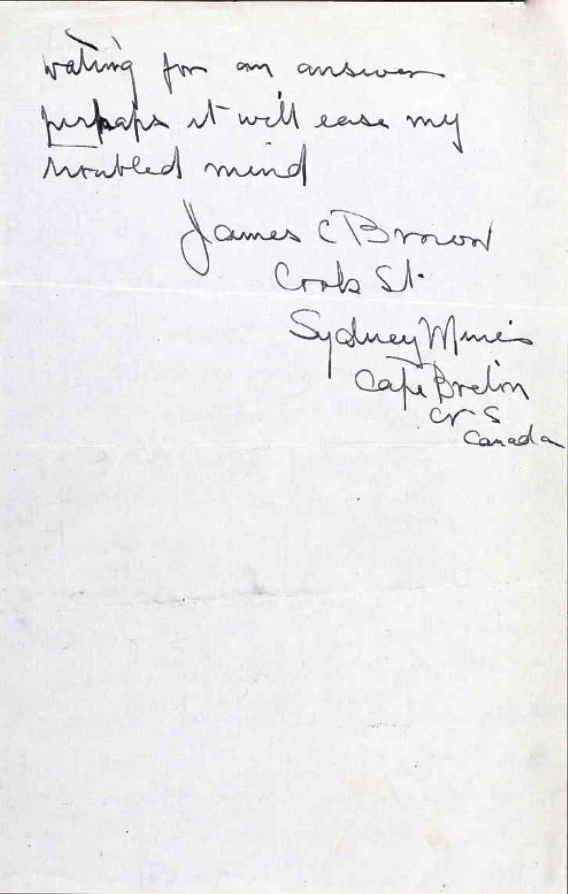 waiting for an answer
perhaps it will ease my
troubled mind
James C Brown
Cook St.
Sydney Mines
Cape Breton
N S
Canada